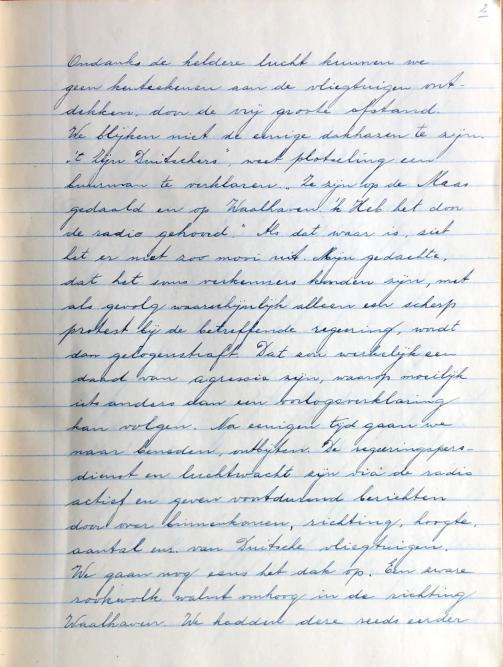 2
Ondanks de heldere lucht kunnen we
geen kenteekenen aan de vliegtuigen ont-
dekken, door de vrij groote afstand.
We blijken niet de eenige dakhazen te zijn.
"'t Zijn Duitschers", weet plotseling een
buurman te verklaren. "Ze zijn op de Maas
gedaald en op Waalhaven 'k Heb het door
de radio gehoord." Als dat waar is, ziet
het er niet zoo mooi uit. Mijn gedachte,
dat het soms verkenners konden zijn, met
als gevolg waarschijnlijk alleen een scherp
protest bij de betreffende regeering, wordt
dan gelogenstraft. Dat zou werkelijk een
daad van agressie zijn, waarop moeilijk
iets anders dan een oorlogsverklaring
kan volgen. Na eenigen tijd gaan we
naar beneden, ontbijten. De regeeringspers-
dienst en luchtwacht zijn via de radio
actief en geven voortdurend berichten
door over binnenkomen, richting, hoogte,
aantal enz. van Duitsche vliegtuigen.
We gaan nog eens het dak op. Een zware
rookwolk walmt omhoog in de richting
Waalhaven. We hadden deze reeds eerder